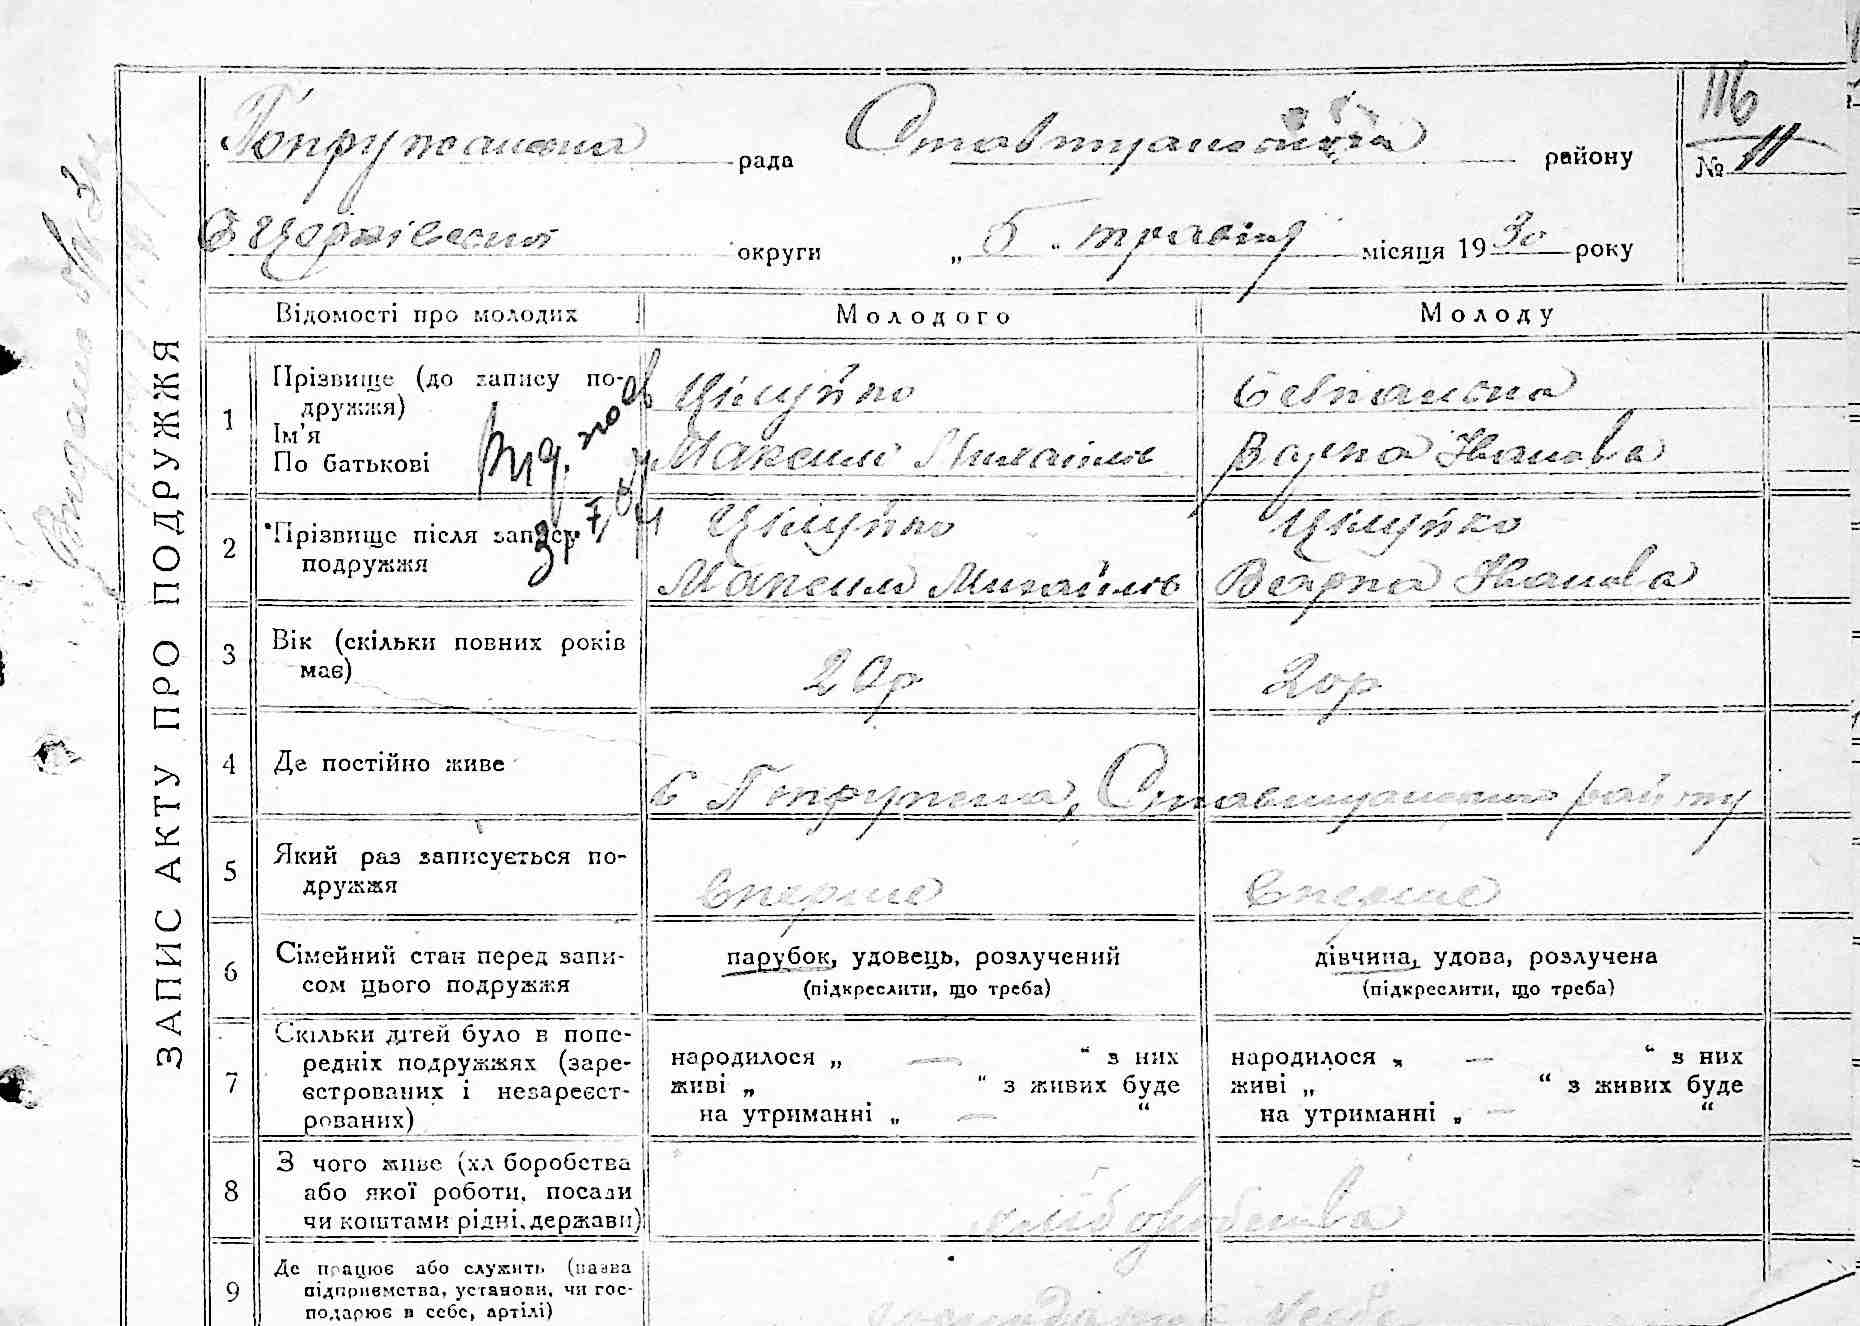 рада Ставищанського району
116
№ 11
Б Церківської округи „ 5 “ травня місяця 1930 року
ЗАПИС АКТУ ПРО ПОДРУЖЖЯ
Відомості про молодих Молодого Молоду
1 Прізвище (до запису по-
дружжя)
Ім'я
По батькові
Цілуйко
Максим Михайлов
Іванова
2 Прізвище після запису
подружжя
Цілуйко Цілуйко
Максим Михайлов Іванова
3 Вік (скільки повних років
має)
20р 20р
4 Де постійно живе
району
5 Який раз записується по-
дружжя
вперше вперше
6 Сімейний стан перед запи-
сом цього подружжя
парубок, удовець, розлучений
(підкреслити, що треба)
дівчина, удова, розлучена
(підкреслити, що треба)
7 Скільки дітей було в попе-
редніх подружжях (заре-
єстрованих і незареєст-
рованих)
народилося „ — “ з них
живі „ “ з живих буде
на утриманні „ — “
народилося „ — “ з них
живі „ “ з живих буде
на утриманні „ — “
8 З чого живе (хліборобства
або якої роботи, посади
чи коштами рідні, держави)
хліборобства
9 Де працює або служить (назва
підприємства, установи, чи гос-
подарює в себе, артілі)